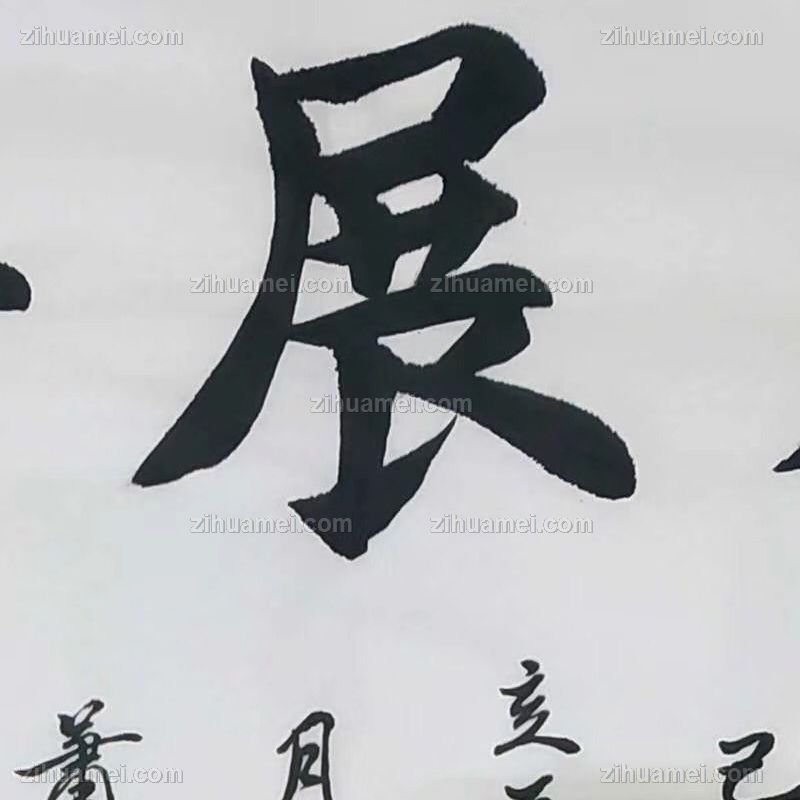 展
己
亥
月
zihuamei.com zihuamei.com
zihuamei.com zihuamei.com
zihuamei.com
zihuamei.com zihuamei.com
zihuamei.com zihuamei.com